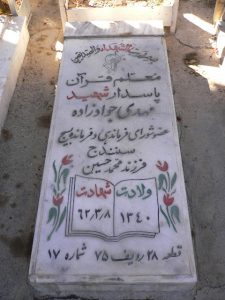 معلم قرآن
پاسدار شهید
مهدی جوادزاده
عضو شورای فرماندهی و فرمانده بسیج
سنندج
فرزند محمد حسین
ولادت شهادت
۱۳۴۰ ۶۲/۳/۸
قطعه ۲۸ ردیف ۷۵ شماره ۱۷